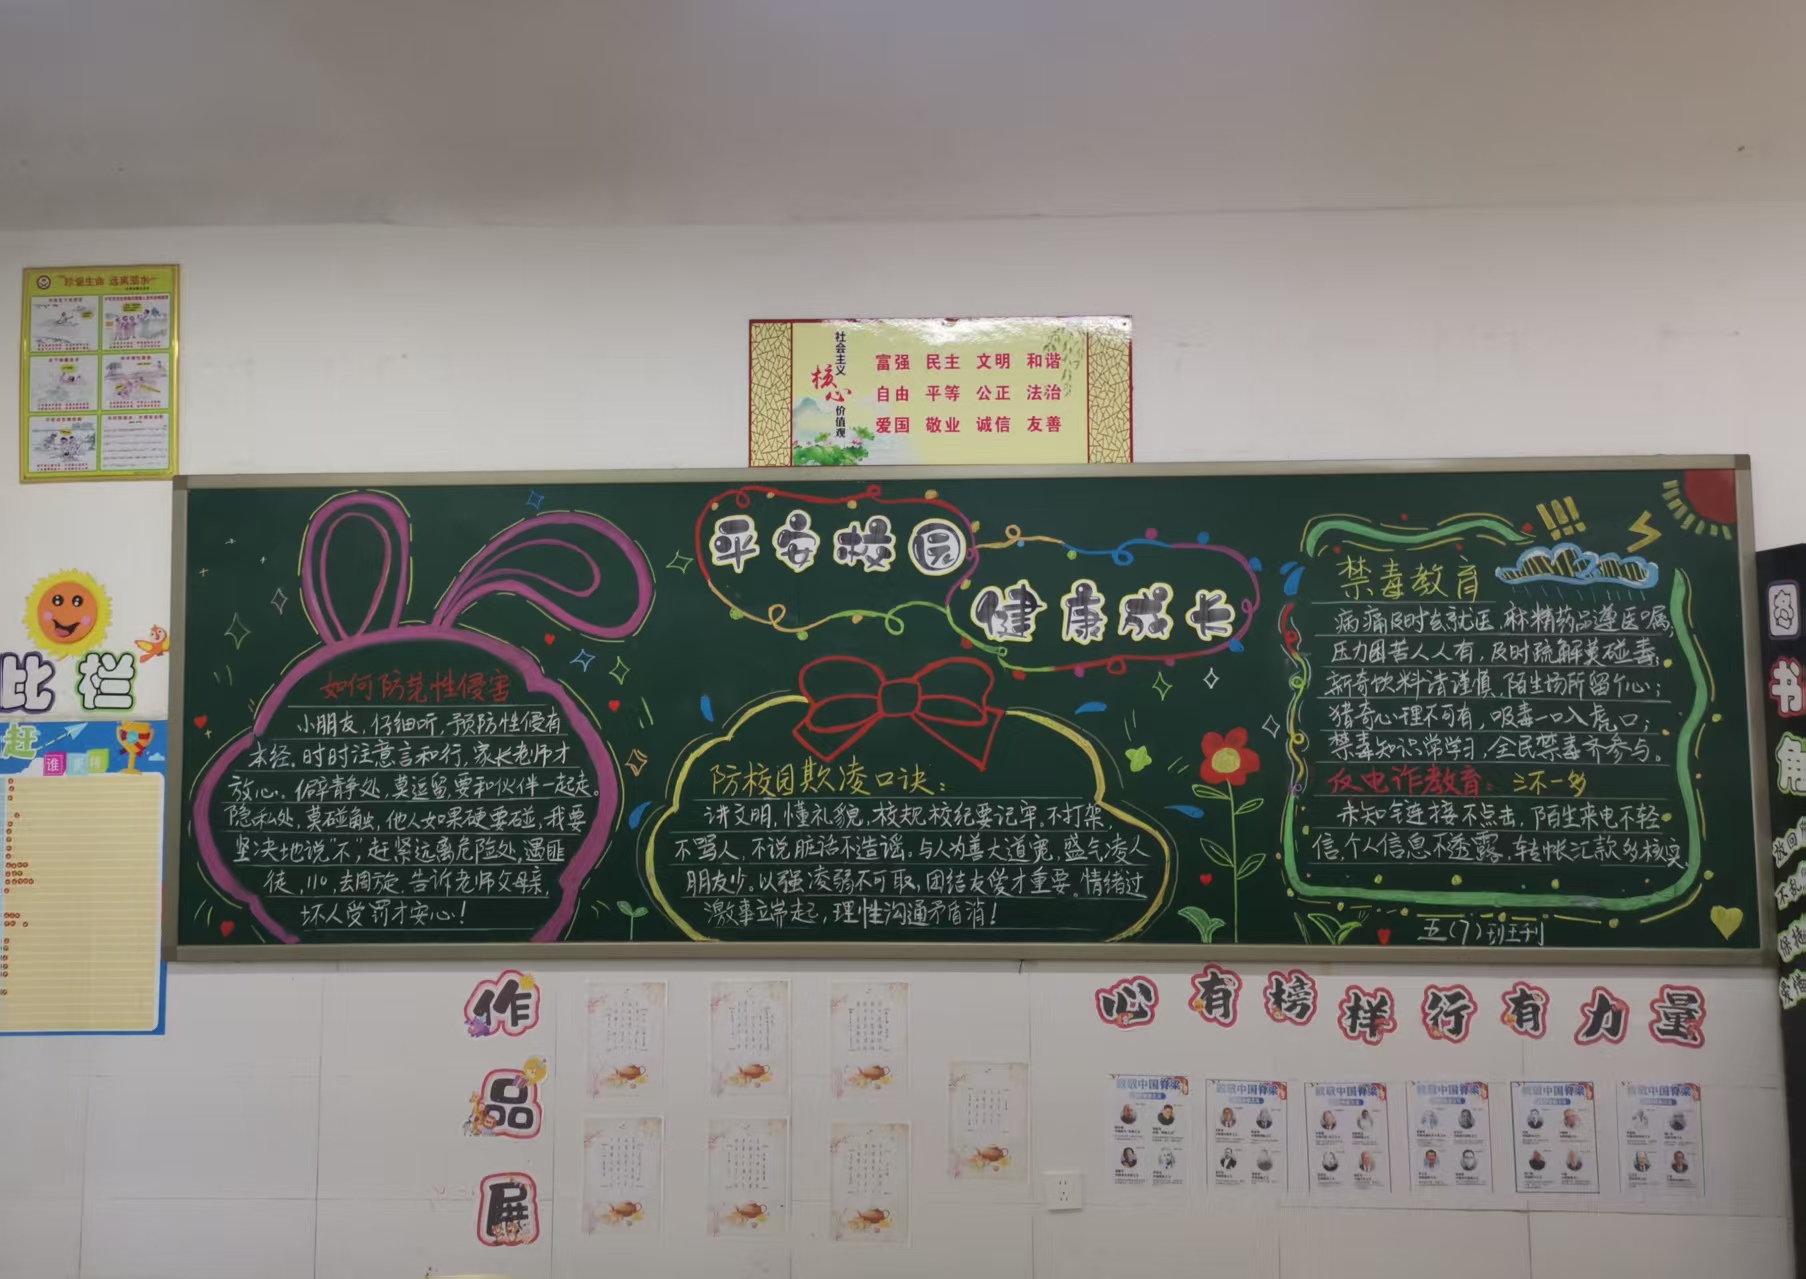 珍爱生命 远离溺水
社会主义
核心
价值观
富强 民主 文明 和谐
自由 平等 公正 法治
爱国 敬业 诚信 友善
平安校园
健康成长
如何防范性侵害
小朋友,仔细听,预防性侵有
本经,时时注意言和行,家长老师才
放心。僻静处,莫逗留,要和伙伴一起走。
隐私处,莫碰触,他人如果硬要碰,我要
坚决地说“不”,赶紧远离危险处,遇匪
徒,110,去周旋.告诉老师父母亲,
坏人受罚才安心!
防校园欺凌口诀:
讲文明,懂礼貌,校规校纪要记牢。不打架,
不骂人,不说脏话不造谣。与人为善大道宽,盛气凌人
朋友少。以强凌弱不可取,团结友爱才重要。情绪过
激事端起,理性沟通矛盾消!
禁毒教育
病痛及时去就医,麻精药品遵医嘱;
压力困苦人人有,及时疏解莫碰毒;
新奇饮料请谨慎,陌生场所留个心;
猎奇心理不可有,吸毒一口入虎口;
禁毒知识常学习,全民禁毒齐参与。
反电诈教育:三不一多
未知链接不点击,陌生来电不轻
信,个人信息不透露,转帐汇款多核实
五(7)班刊
比栏
赶
谁
图书角
作品展
心有榜样行有力量
致敬中国脊梁
致敬中国脊梁
致敬中国脊梁
致敬中国脊梁
致敬中国脊梁
致敬中国脊梁